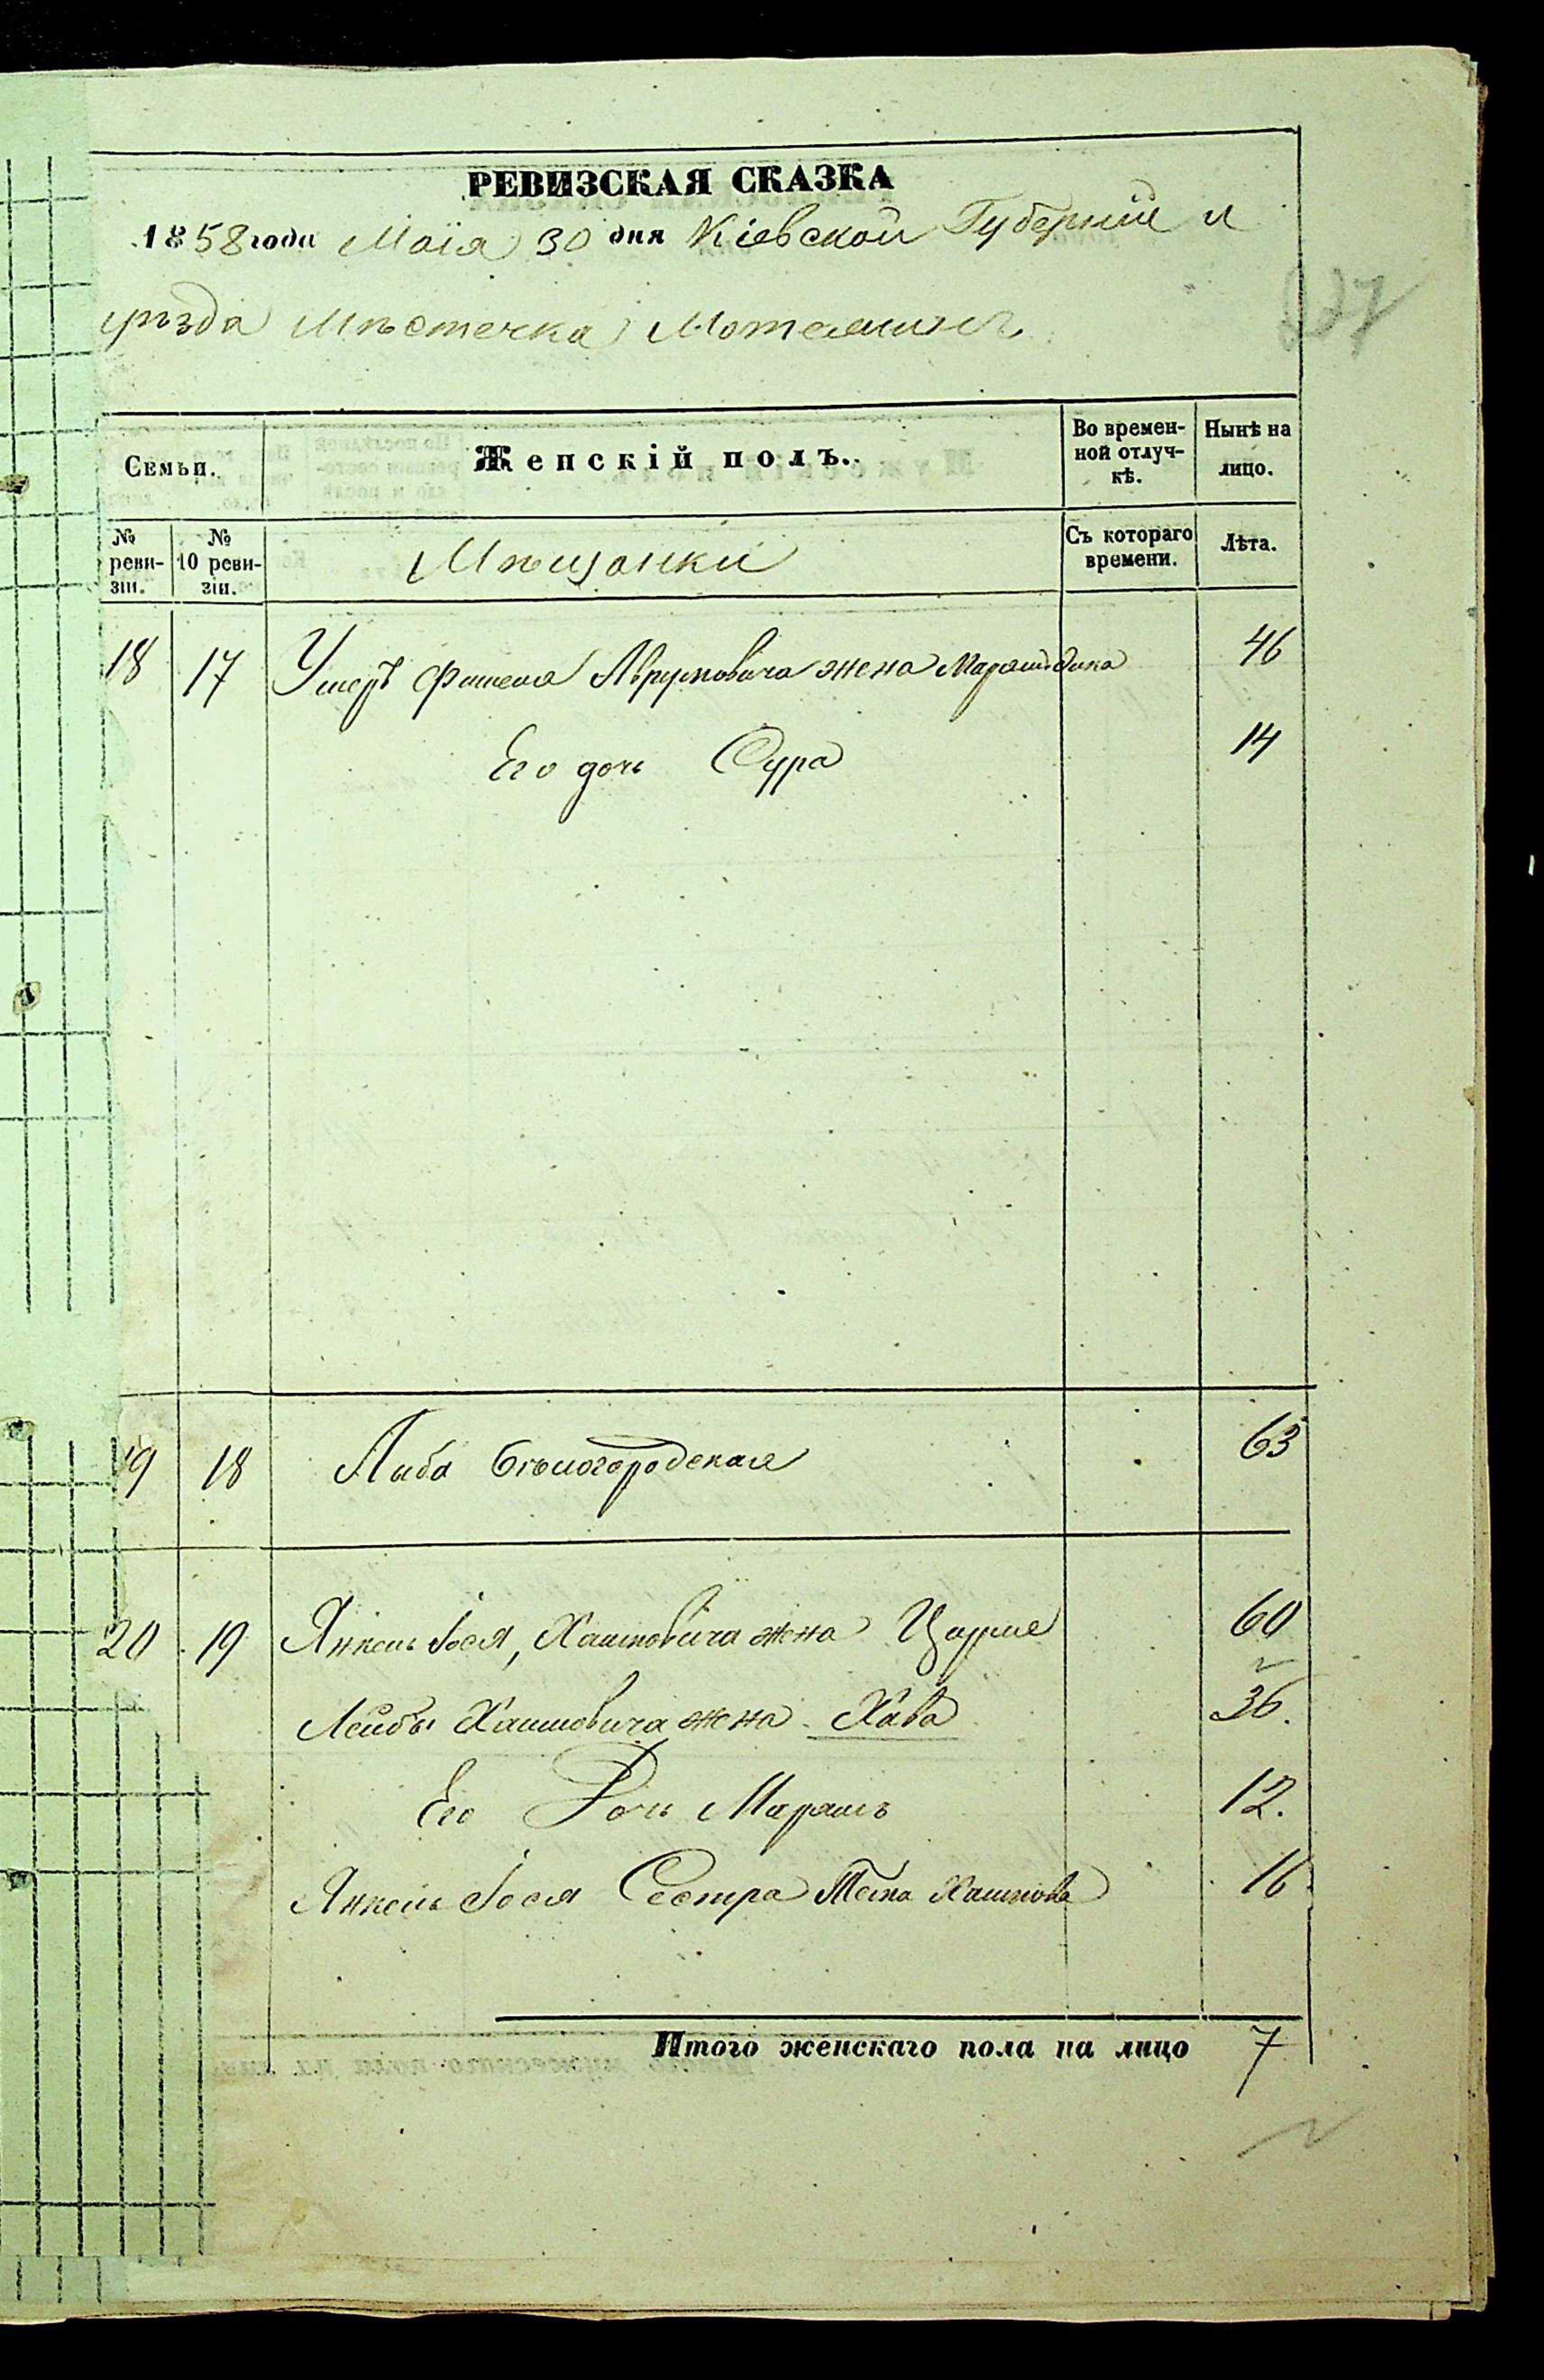 РЕВИЗСКАЯ СКАЗКА
1858 года Маія 30 дня Кіевской Губерніи и
уѣзда Мѣстечка
Семьи.
Женскій полъ.
Во времен-
ной отлуч-
кѣ.
Нынѣ на
лицо.
№
реви-
зіи.
№
10 реви-
зіи.
Мѣщанки
Съ котораго
времени.
Лѣта.
18 17 Умеръ Фишеля Аврумовича жена 46
Его дочь Сура 14
19 18 Бѣлогородская 63
20 19 Янкель Іося, Хаимовича жена 60
Лейбы Хаимовича жена Хава 36.
Его Дочь Маріямъ 12.
Янкель Іося Сестра Хаимова 16
Итого женскаго пола на лицо 7